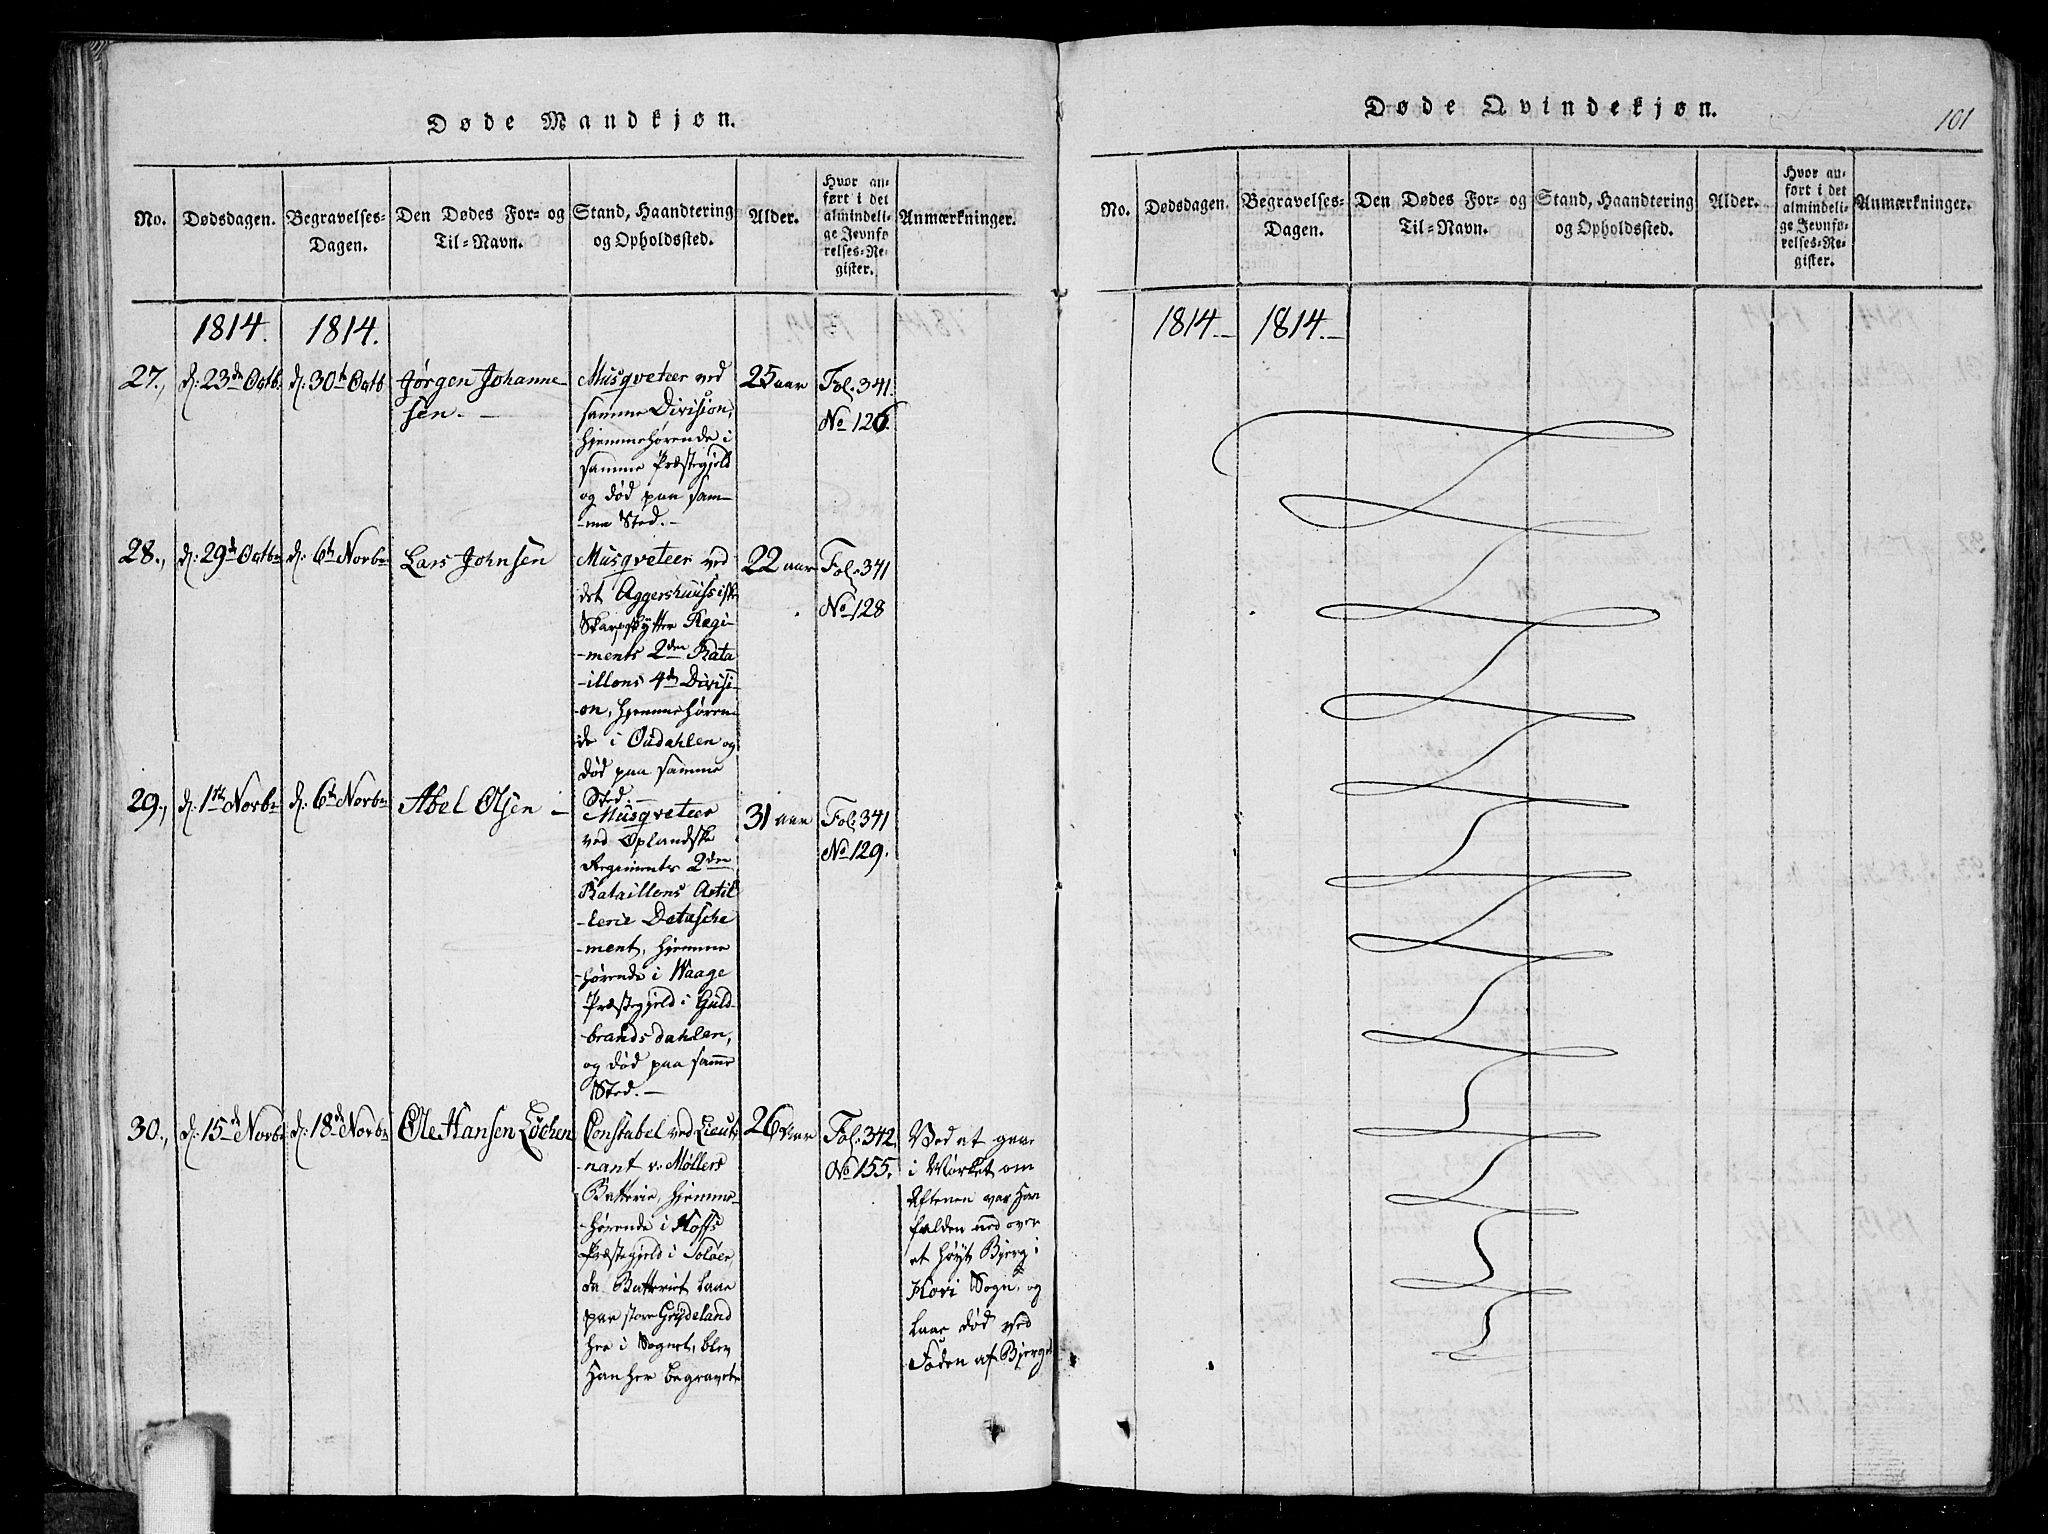 Døde Mandkjøn.
No.
Dødsdagen.
Begravelses-
Dagen.
Den Dødes For- og
Til-Navn.
Stand, Haandtering
og Opholdssted.
Alder.
Hvor an-
ført i det
almindeli-
ge Jevnfø-
relses-Re-
gister.
Anmærkninger.
1814.
1814.
27.,
d: 23de Octb.
d: 30te Octb
Jørgen Johanne-
sen. -
Musqveteer ved
samme Division,
hjemmehørende i
samme Præstegjeld
og død paa sam-
-me Sted. -
25 aar
Fol. 341.
No 126.
28.,
d: 29de Octbr
d: 6te Novbr
Lars Johnsen
Musqveteer ved
det Aggershuusiske
Skarpskytter Regi-
-ments 2den Bata
-illons 4de Divisi-
-on, hjemmehøren-
de i Oudahlen og
død paa samme
Sted. -
22 aar
Fol. 341
No 128
29.,
d: 1ste Novbr
d: 6te Novbr
Abel Olsen -
Musqveteer
ved Oplandske
Regiments 2den
Bataillons Artil-
-lerie Detasche
-ment, hjemme
-hørende i Waage
Præstegjeld i Guld-
-brandsdahlen,
og død paa samme
Sted. -
31 aar
Fol. 341
No 129.
30.,
d: 15de Novbr
d: 18de Novbr
Ole Hansen Løchen
Constabel ved Lieute
-nant v. Møllers
Batterie, hjemme-
-hørende i Hoffs
Præstegjeld i Soløer,
da Batteriet laae
paa store Grydeland
her i Sognet, blev
Han her begravet
26 aar
Fol. 342.
No 155.
Ved at gaae
i Mørket om
Aftenen var Han
falden ned over
et høyt Bjerg i
Hovi Sogn, og
laae død ved
Foden af Bjerget
Døde Qvindekjøn.
101
No.
Dødsdagen.
Begravelses-
Dagen.
Den Dødes For- og
Til-Navn.
Stand, Haandtering
og Opholdssted.
Alder.
Hvor an-
ført i det
almindeli-
ge Jevnfø-
relses-Re-
gister.
Anmærkninger.
1814. -
1814. -